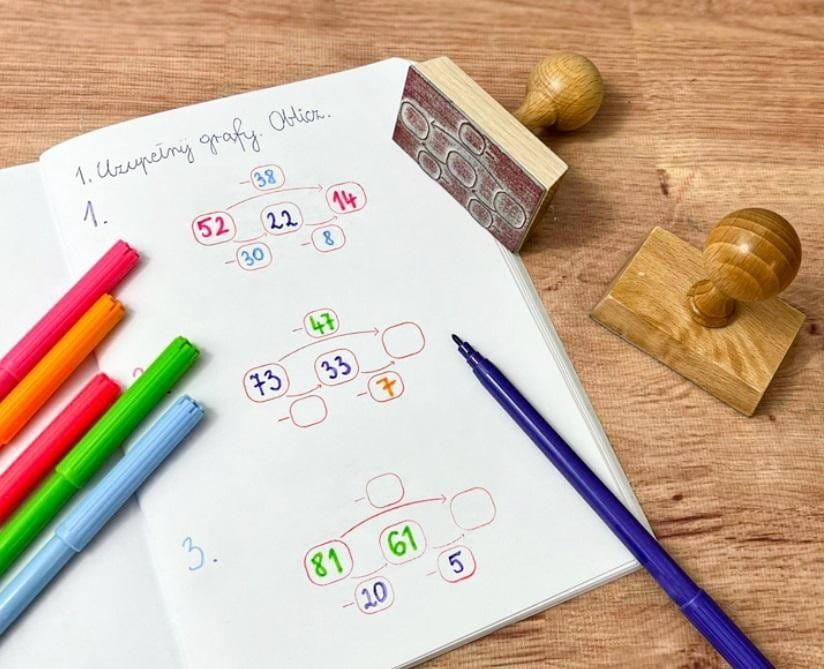 1. Uzupełnij grafy. Oblicz.
1.
- 38
52 22 14
- 30 - 8
- 47
73 33
- - 7
-
3.
81 61
- 20 - 5